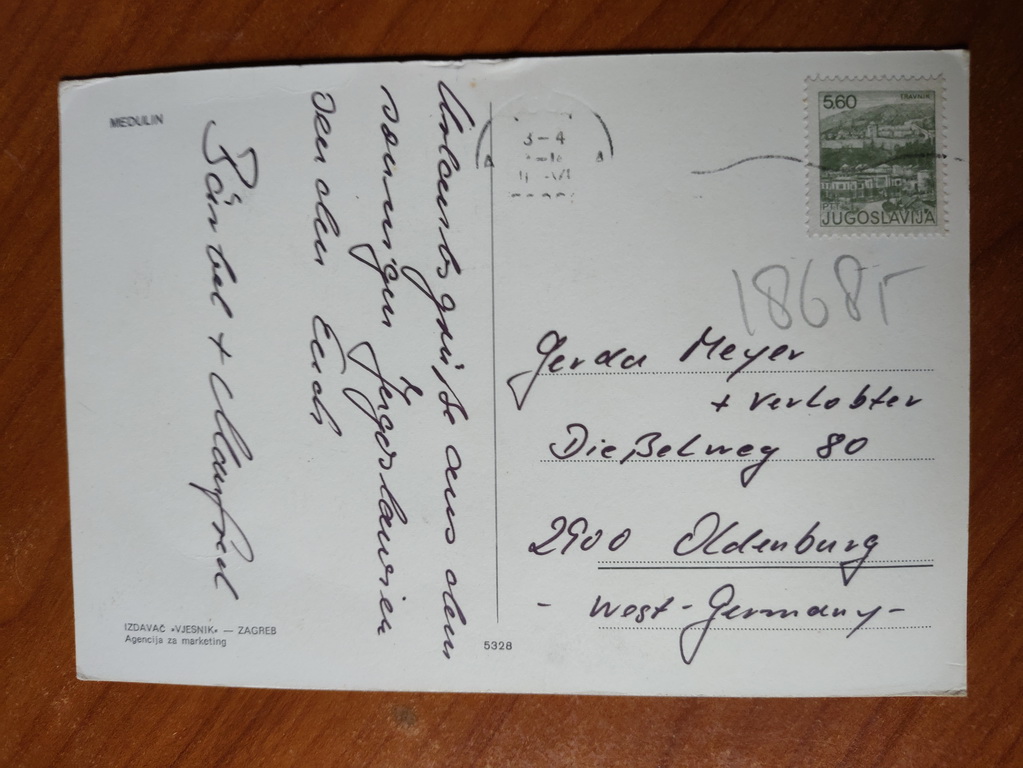 MEDULIN
Urlaubsgrüße aus dem
sonnigen Jugoslawien
senden Euch
Bärbel + Manfred
IZDAVAČ »VJESNIK« — ZAGREB
Agencija za marketing
5328
3-4
5.60
JUGOSLAVIJA
1868
Gerda Meyer
+ Verlobter
Dießelweg 80
2900 Oldenburg
- West-Germany-